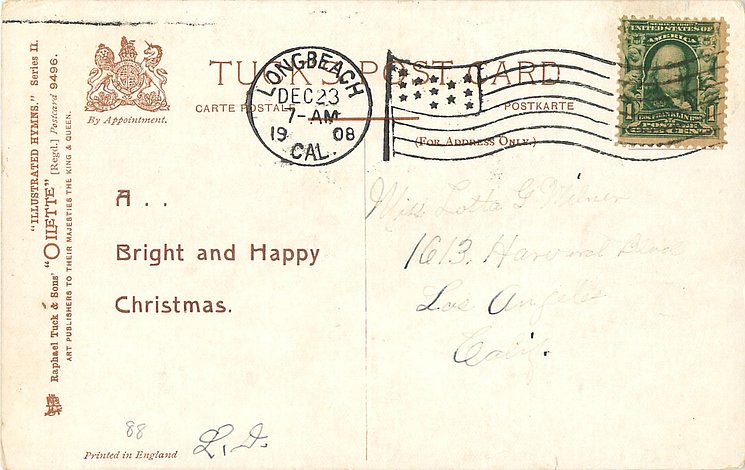 "ILLUSTRATED HYMNS." Series II.
Raphael Tuck & Sons' "OILETTE" [Regd.] Postcard 9496.
ART PUBLISHERS TO THEIR MAJESTIES THE KING & QUEEN.
By Appointment.
TUCK'S POST CARD
CARTE POSTALE
POSTKARTE
(For Address Only.)
LONGBEACH
DEC 23
7-AM
19 08
CAL.
SERIES 1902
UNITED STATES OF
AMERICA
1 BENJ. FRANKLIN 1
POSTAGE
ONE CENT
A . .
Bright and Happy
Christmas.
Miss Lotta G Milner
1613. Harvard Blvd
Los Angeles
Calif.
88
L. D.
Printed in England